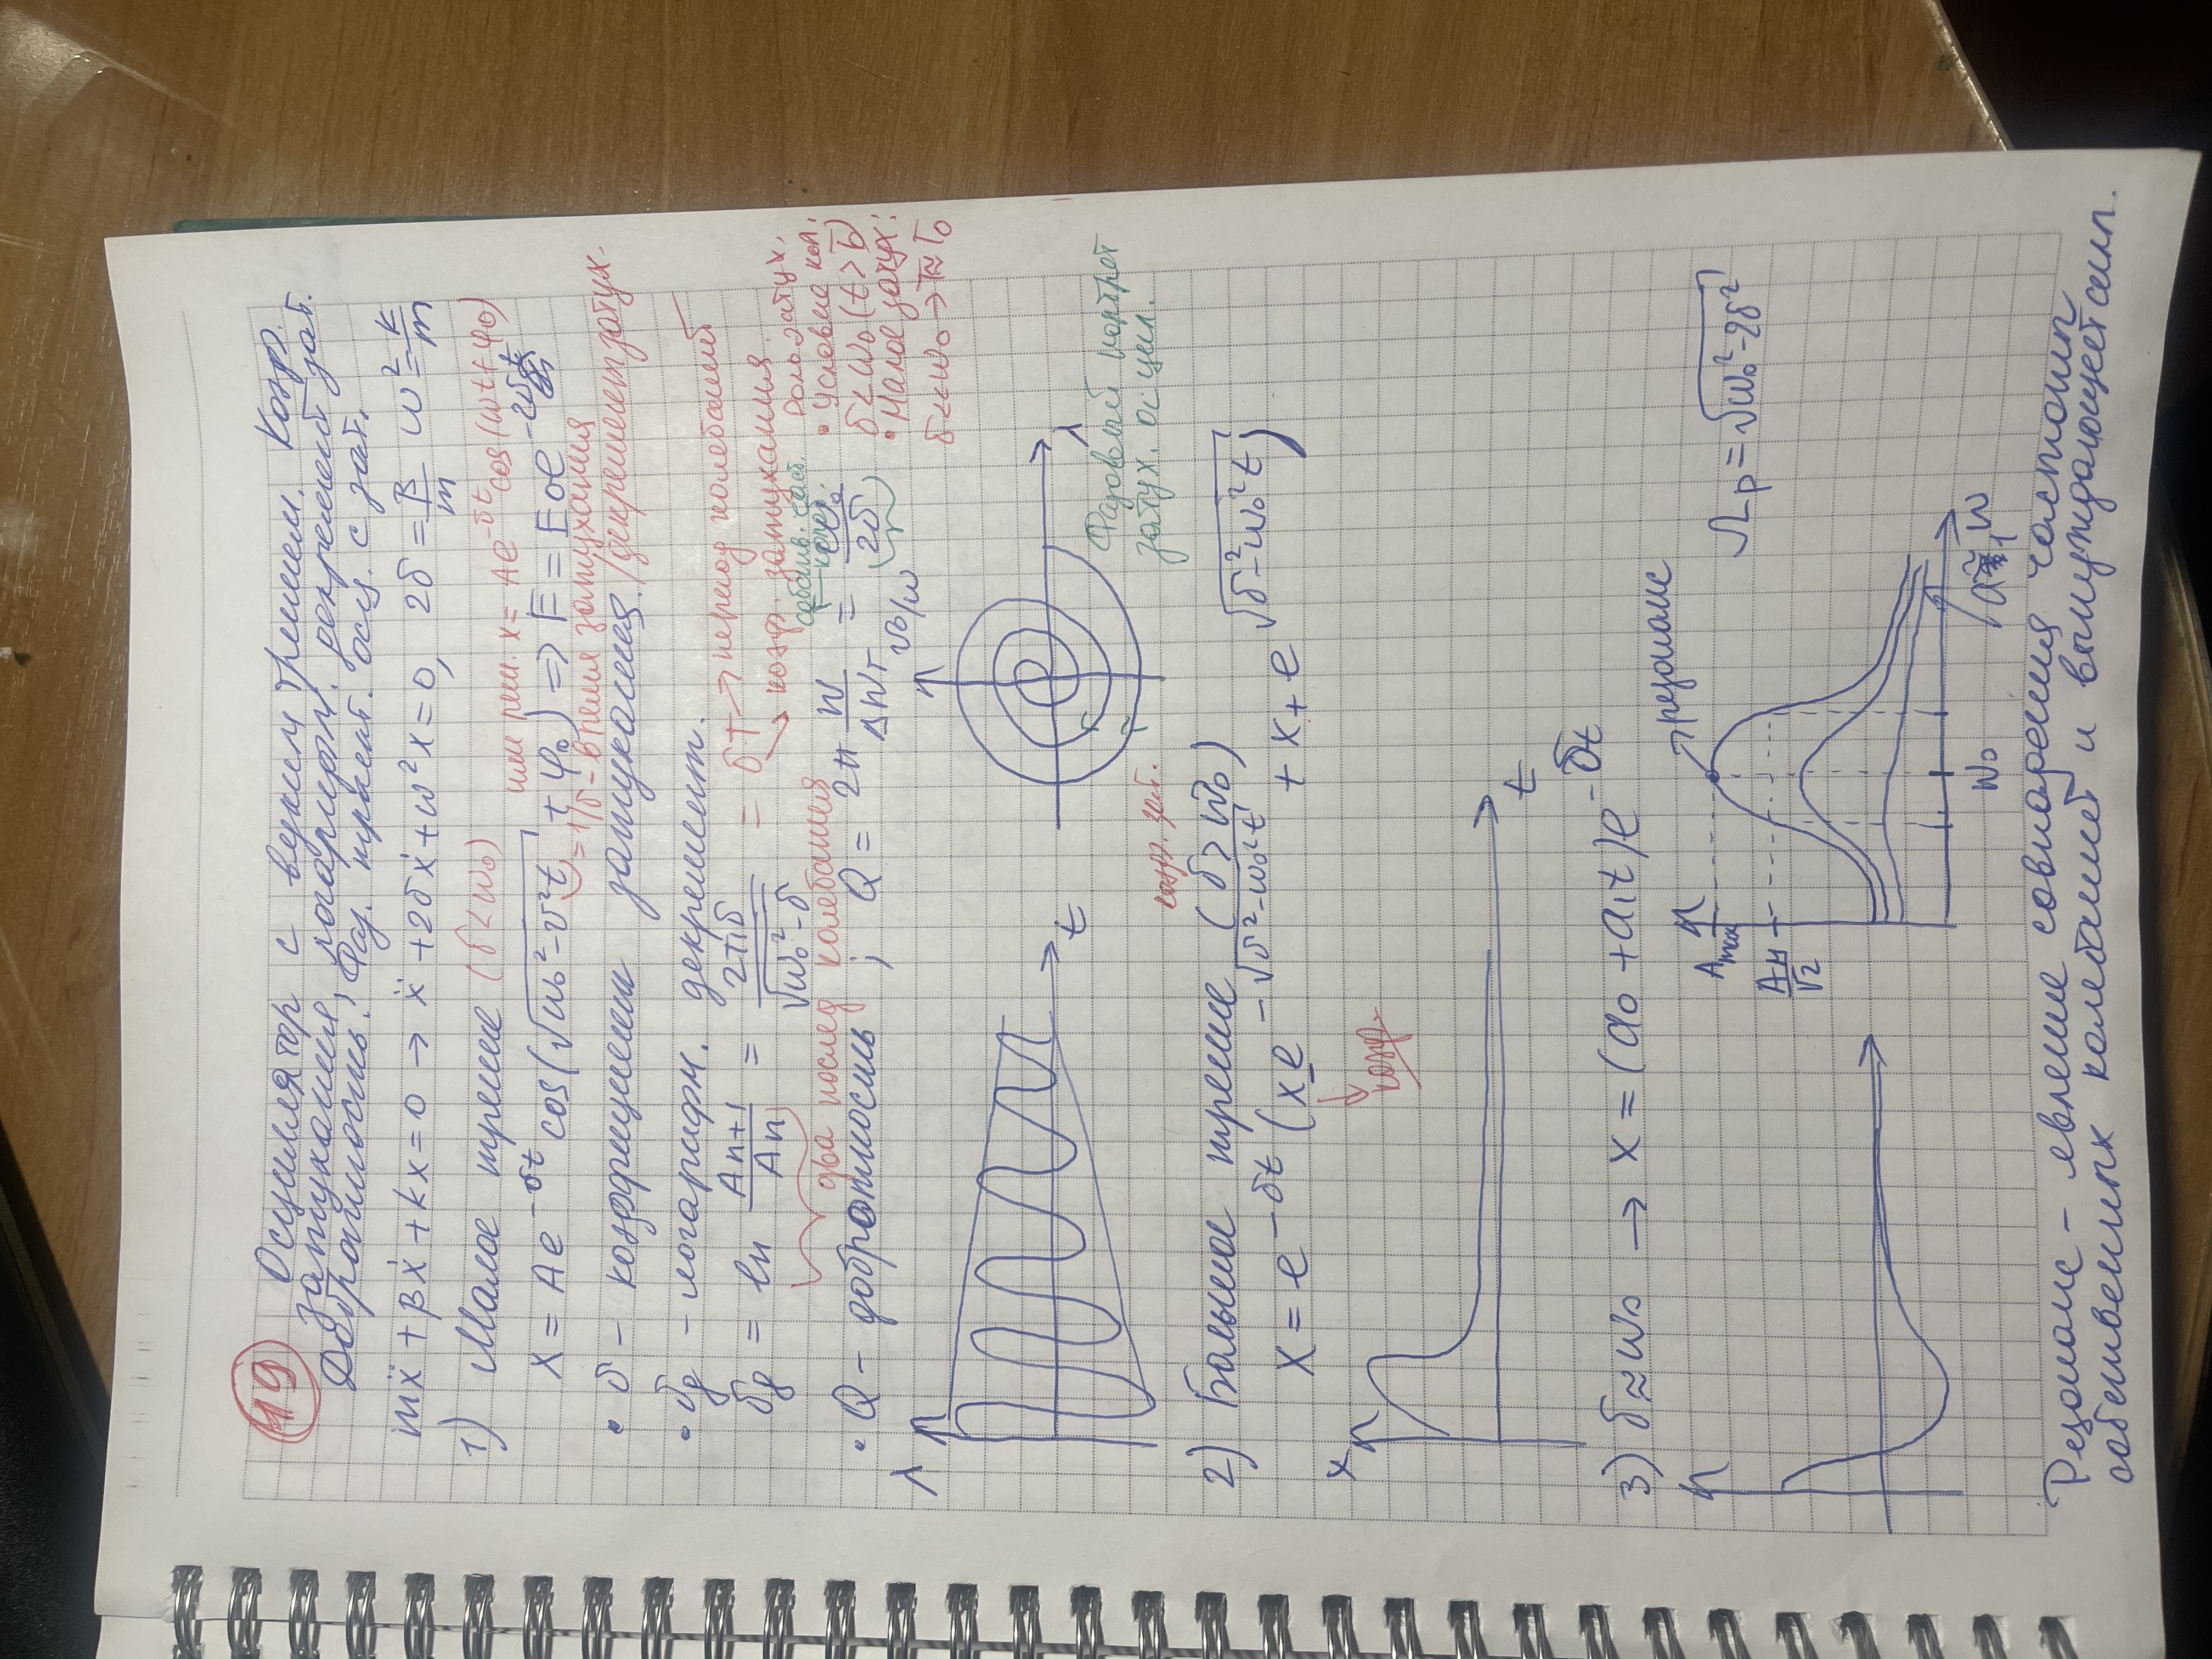 19 Осциллятор с вязким трением. Коэф.
затухания, логарифм. декремент зат.
Добротность. Фаз. траект. осц. с зат.
mẍ + βẋ + kx = 0 → ẍ + 2δẋ + ω²x = 0, 2δ = β/m ω² = k/m
1) Малое трение (δ < ω₀)
или реш. x = Ae^(-δt) cos(ωt + φ₀)
X = Ae^(-δt) cos(√(ω₀² - v²t) + φ₀) => E = E₀e^(-2δt)
= 1/δ - время затухания
• δ - коэффициент затухания. /декремент затух.
• δg - логарифм. декремент.
δg = ln An+1/An = 2πδ/√(ω₀² - δ) = δT → период колебаний
→ коэф. затухания.
два послед колебания
собств. част. колеб.
• Q - добротность ; Q = 2π W/ΔWт = ω₀/2δ
Роль затух.
• Условие кол:
δ < ω₀
• Малое затух:
δ << ω₀ → T ≈ T₀
t
Фазовый портрет
затух. осцил.
коэф. зат.
2) Большое трение (δ > ω₀)
X = e^(-δt) (x₋e^(-√(δ² - ω₀²t)) + x₊e^(√(δ² - ω₀²t)))
коэф.
x
t
3) δ ≈ ω₀ → x = (a₀ + a₁t)e^(-δt)
резонанс
Amax
Aм/√2
Ωp = √(ω₀² - 2δ²)
ω₀
ω
Резонанс - явление совпадения частоты
собственных колебаний и вынуждающей силы.